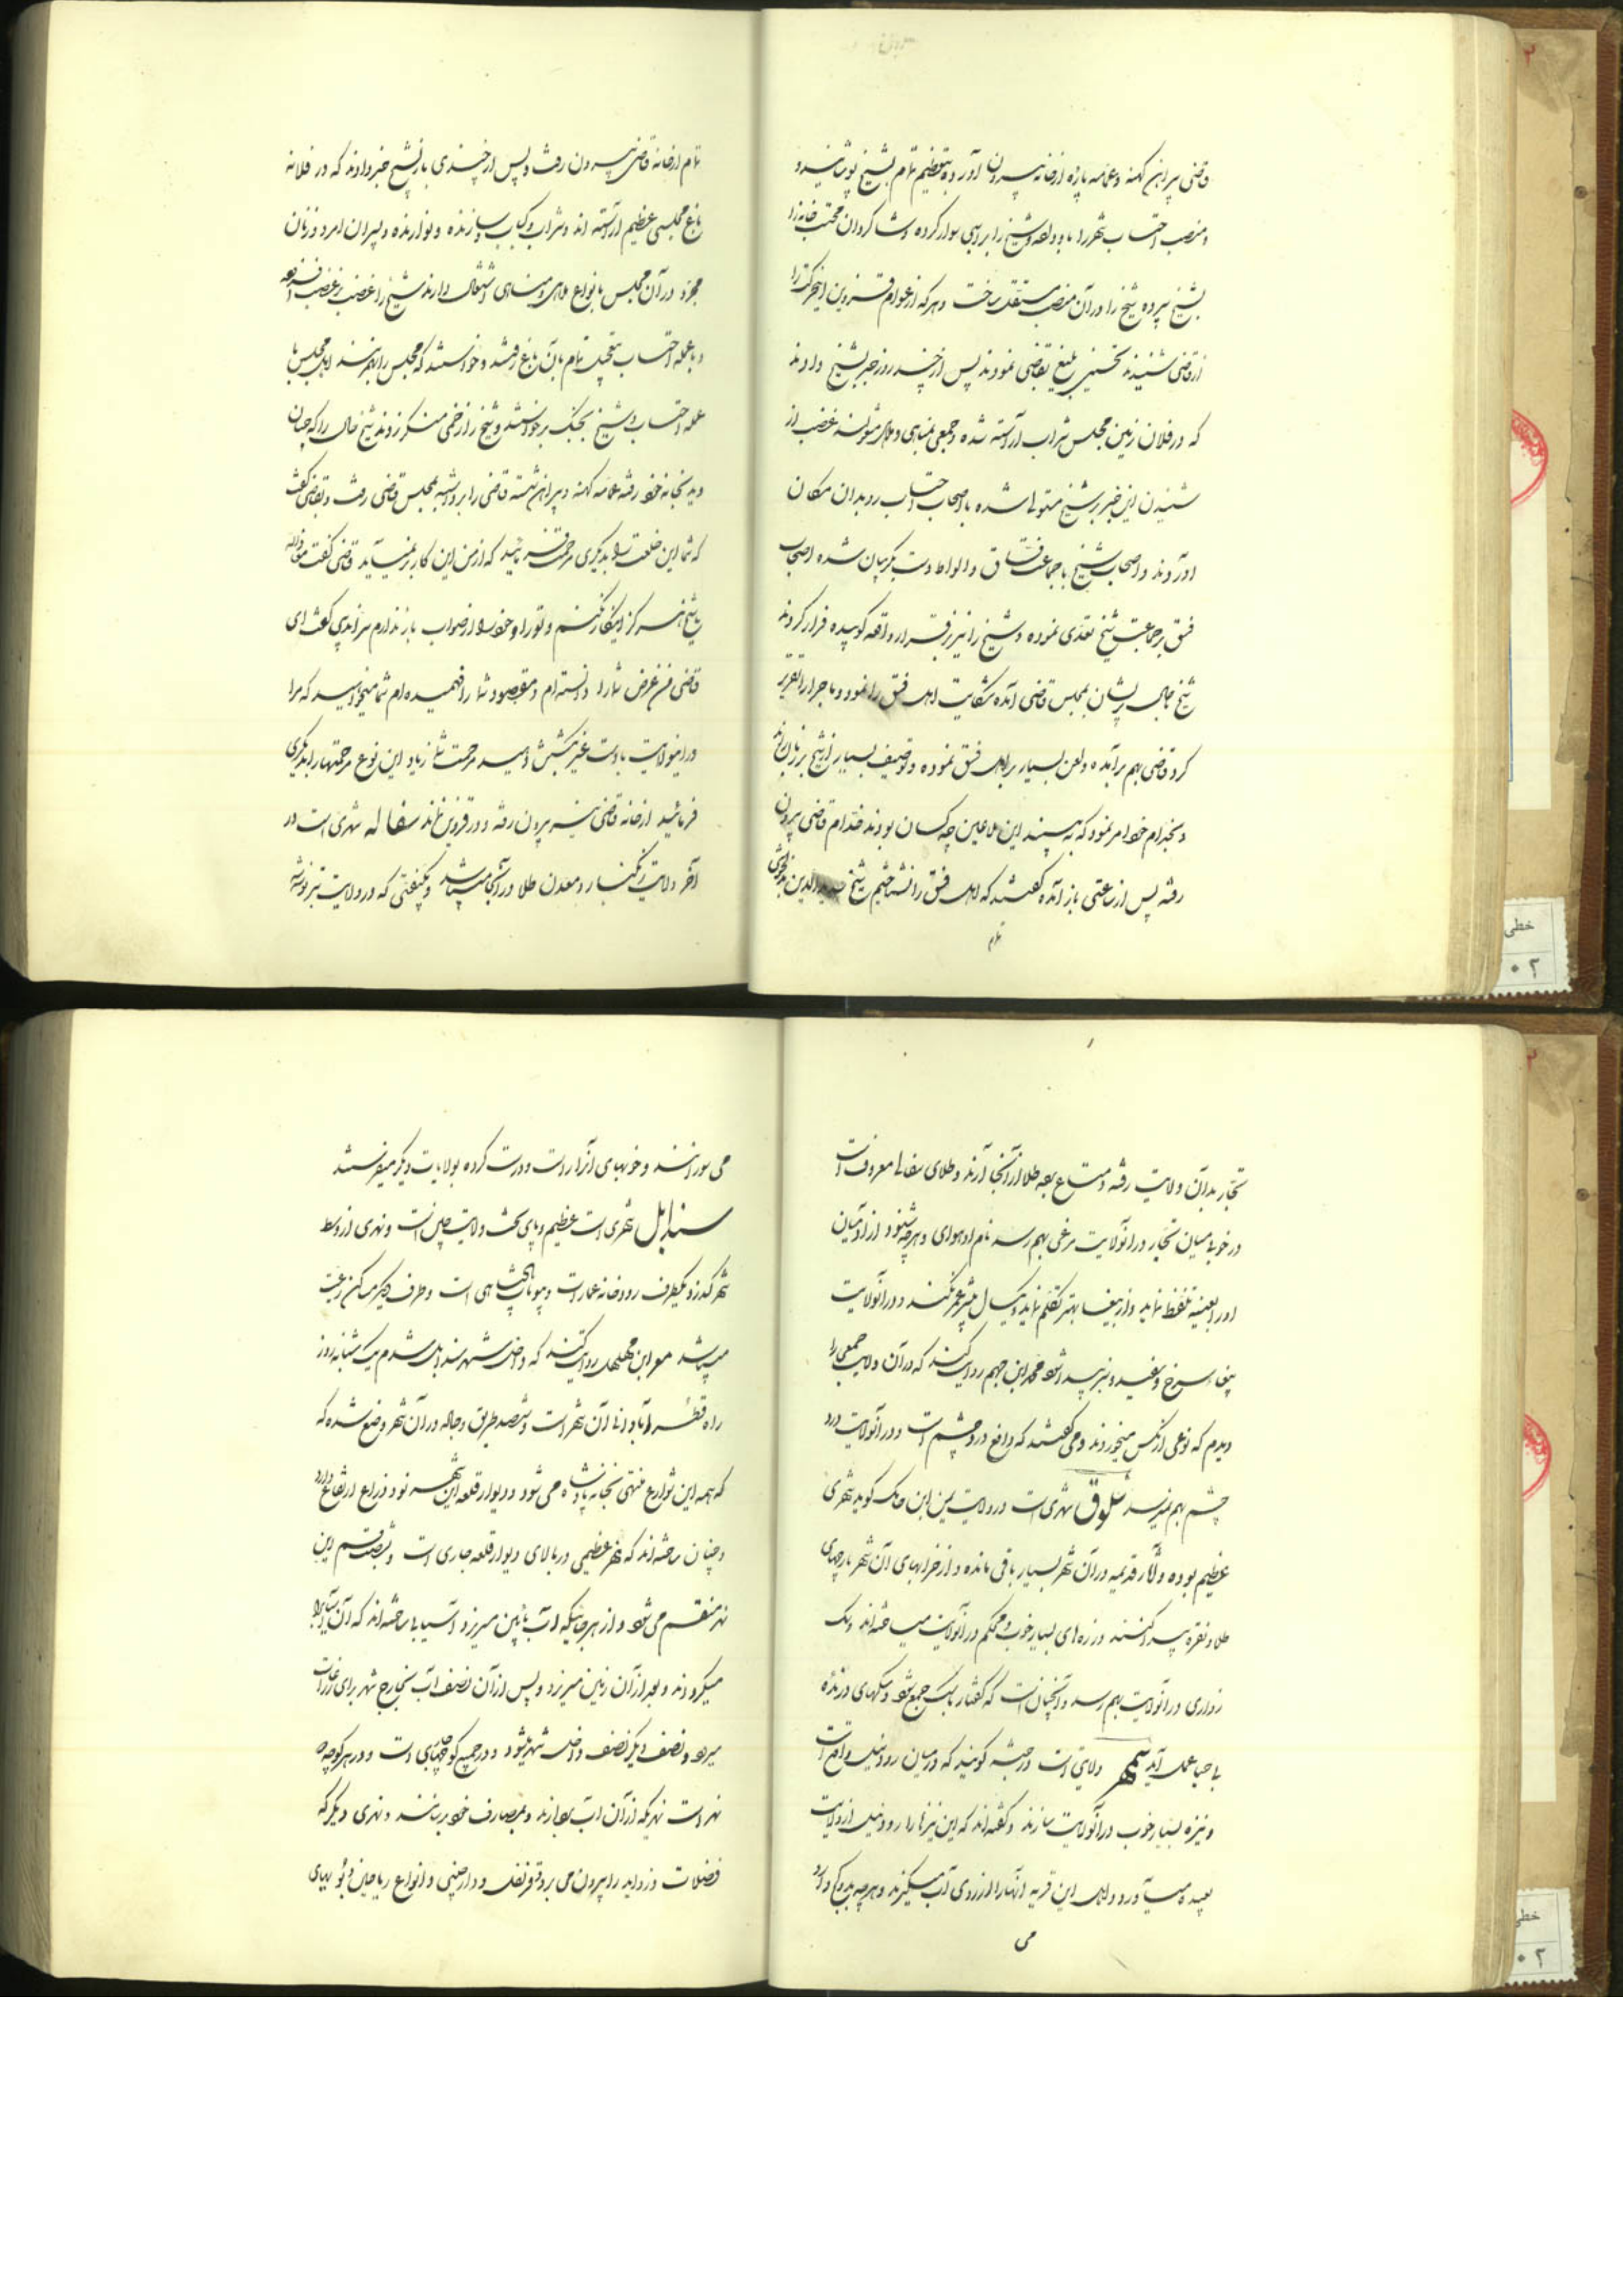 قاضی پیراهن کهنه و عمامه پاره از خانه بیرون آورده بتعظیم تمام بشیخ پوشانید و
و منصب احتساب شهر را باو داده و شیخ را بر اسبی سوار کرده و شاکردان محتسب خانه را
بشیخ سپرده شیخ را در آن منصب مستقل ساخت و هر که از عوام قزوین این حرکت را
از قاضی شنیدند تحسین بلیغ بقاضی نمودند پس از چند روز خبر بشیخ دادند
که در فلان زمین مجلس شراب آراسته شده و جمعی بمناهی و ملاهی مشغولند غضب از
شنیدن این خبر بر شیخ مستولی شده با اصحاب احتساب رو بدان مکان
آوردند و اصحاب شیخ با جماعت فساق و الواط دست بکریبان شده اصحاب
فسق بر جماعت شیخ تعدی نموده و شیخ را نیز بر قرار واقعه کوبیده فرار کردند
شیخ بحالی پریشان بمجلس قاضی آمده شکایت اهل فسق را نمود و ماجرا را تقریر
کرد قاضی بهم برآمده و لعن بسیار بر اهل فسق نموده و توصیف بسیار از شیخ بر زبان راند
و بخدام خود امر نمود که به بینید این ملاعین چه کسان بودند خدام قاضی بیرون
رفته پس از ساعتی باز آمده کفتند که اهل فسق را نشناختیم شیخ
تمام
تمام از خانه قاضی بیرون رفت و پس از چندی باز بشیخ خبر دادند که در فلانه
باغ مجلسی عظیم آراسته اند و شراب و کباب و سازنده و نوازنده و پسران امرد و زنان
در آن مجلس بانواع ملاهی و مناهی اشتغال دارند شیخ را غضب بر غضب افزوده
و با عمله احتساب بتعجیل تمام بآن باغ رفتند و خواستند که مجلس را بر هم زنند اهل مجلس با
عمله احتساب و شیخ بجنک برخواستند و شیخ را زخمی منکر زدند شیخ حال را که چنان
دید بخانه خود رفته عمامه کهنه و پیراهن قاضی را برداشته بمجلس قاضی رفت و بقاضی کفت
که شما این خلعت را بدیکری مرحمت فرمائید که از من این کار بر نمیآید قاضی کفت معاذ الله
یا شیخ هرکز اینکار نکنم و تو را و خود را از ثواب باز ندارم کفت ای
قاضی من غرض شما را دانسته ام و مقصود شما را فهمیده ام شما میخواهید که مرا
در این ولایت بدست غیر بکشتن دهید مرحمت شما زیاد این نوع مرحمتها را بدیکری
فرمائید از خانه قاضی نیز بیرون رفته و در قزوین نماند سفاله شهری است در
آخر ولایت زنکبار و معدن طلا در آنجا میباشد و بکیفیتی که در ولایت تبر نوشته
تجار بدان ولایت رفته و متاع برده طلا از آنجا آرند و طلای سفاله معروف است
در خوبی میان تجار در آنولایت مرغی بهم رسد نام او هوای و هر چه شنود از آدمیان
او را بعینه تلفظ نماید و از ببغا بهتر تکلم نماید و یکسال بیشتر عمر نکند و در آنولایت
ببغاء سرخ و سفید و سبز پیدا شود محمد ابن جهم روایت کند که در آن ولایت جمعی را
دیدم که نوعی از مکس میخوردند و می کفتند که دافع درد چشم است و در آنولایت درد
چشم بهم نمیرسد سلوق شهری است در ولایت یمن ابن حایک کوید شهری
عظیم بوده و آثار قدیمه در آن شهر بسیار باقی مانده و از خرابهای آن شهر پارچهای
طلا و نقره پیدا کنند و زره های بسیار خوب و محکم در آنولایت میساخته اند و سک
در آنولایت بهم رسد و آنچنان است که کفتار با سک جمع شود و سکهای درنده
باصبا عمل آید سمهر ولایتی است در حبشه کویند که در میان رود نیل واقع است
و نیزه بسیار خوب در آنولایت سازند و کفته اند که این نیزها را رود نیل از ولایت
بعیده میآورد و اهل این قریه آنها را از روی آب میکیرند و هر چه بد و کج دارد
می
می سوزانند و خوبهای آنرا راست و درست کرده بولایات دیکر میفرستند
سندابل شهری است عظیم و پای تخت ولایت چین است و نهری از وسط
شهر کذرد و یکطرف رودخانه عمارات و بیوتات پادشاهی است و طرف دیکر مساکن رعیت
میباشد مسعر ابن مهلهل روایت کند که داخل شهر سندابل شدم یک شبانه روز
راه قطر آبادانی آن شهر است و شصد طریق و جاده در آن شهر وضع شده که
که همه این شوارع منتهی بخانه پادشاه می شود و دیوار قلعه این شهر نود ذراع ارتفاع دارد
و چنان ساخته اند که نهر عظیمی در بالای دیوار قلعه جاری است و بشصت قسم این
نهر منقسم می شود و از هر جائیکه آب بپائین میریزد آسیابی ساخته اند که آن آسیا را
میکرداند و بعد از آن بزمین میریزد و پس از آن نصف آب بخارج شهر برای زراعات
میرود و نصف دیکر داخل شهر میشود و در جمیع کوچها جاری است و در هر کوچه دو
نهر است نهریکه از آن آب بردارند و بمصارف خود برسانند و نهری دیکر که
فضلات و زواید را بیرون می برد و قرنفل و دارچینی و انواع ریاحین و بویهای
خطی
۰۲
خطی
۰۲